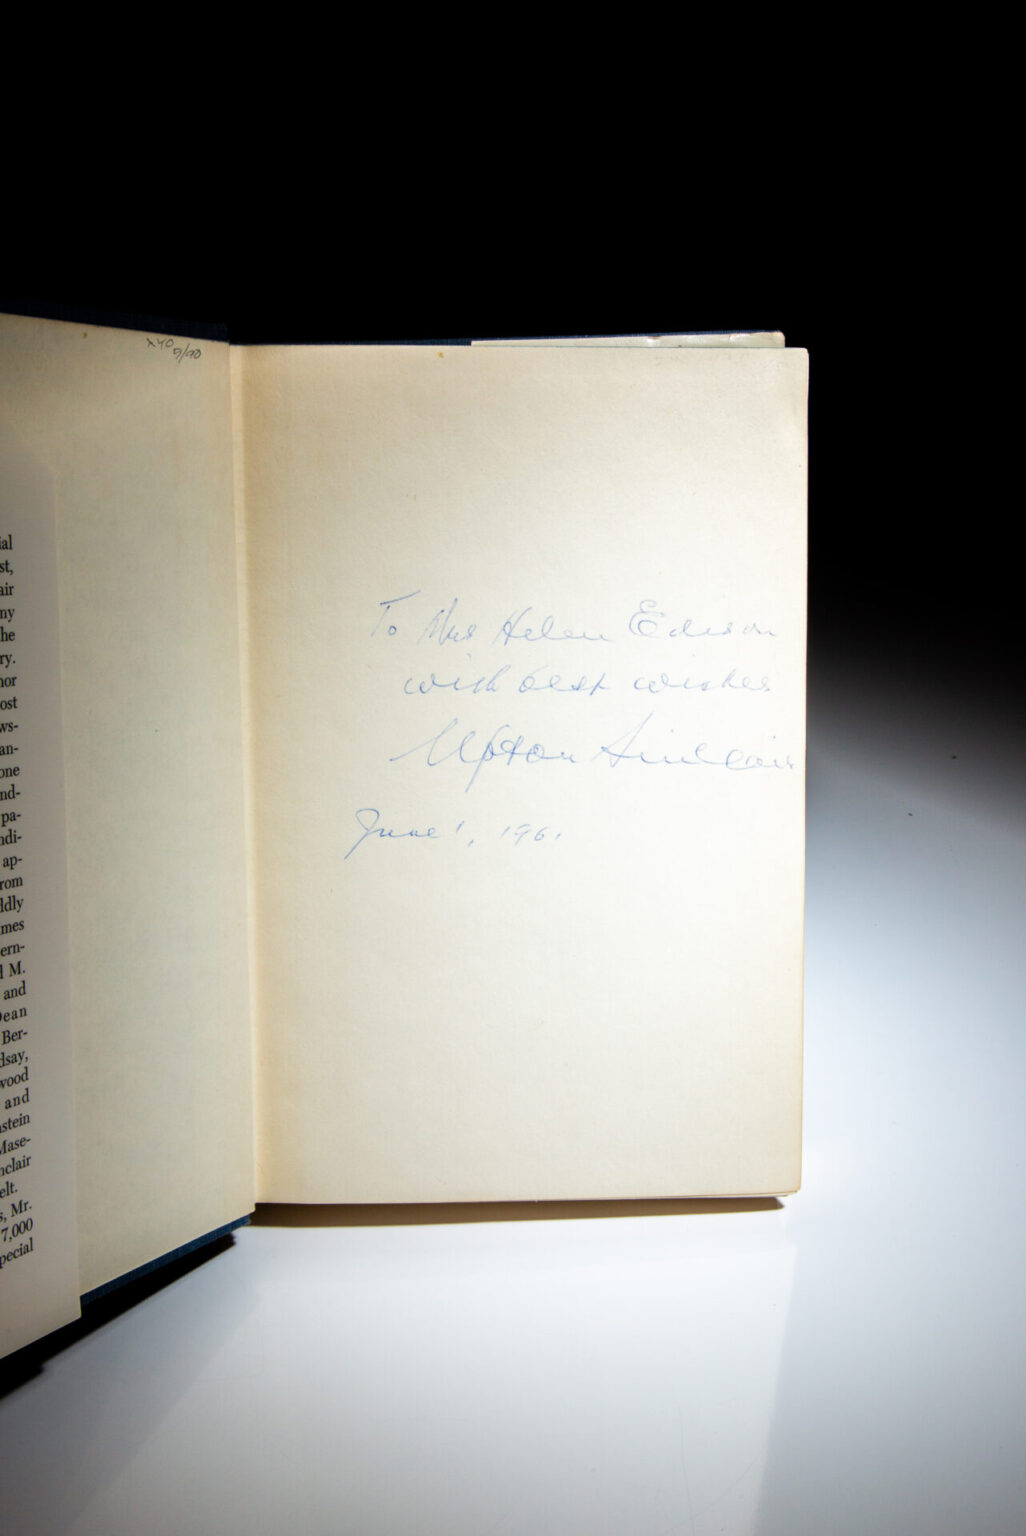 xyo
9/90
ial
st,
air
ny
he
ry.
nor
ost
ws-
an-
one
nd-
pa-
ndi-
ap-
rom
ldly
mes
ern-
d M.
and
Dean
Ber-
dsay,
wood
and
nstein
Mase-
nclair
elt.
s, Mr.
7,000
pecial
To Mrs Helen Edison
with best wishes
Upton Sinclair
June 1, 1961